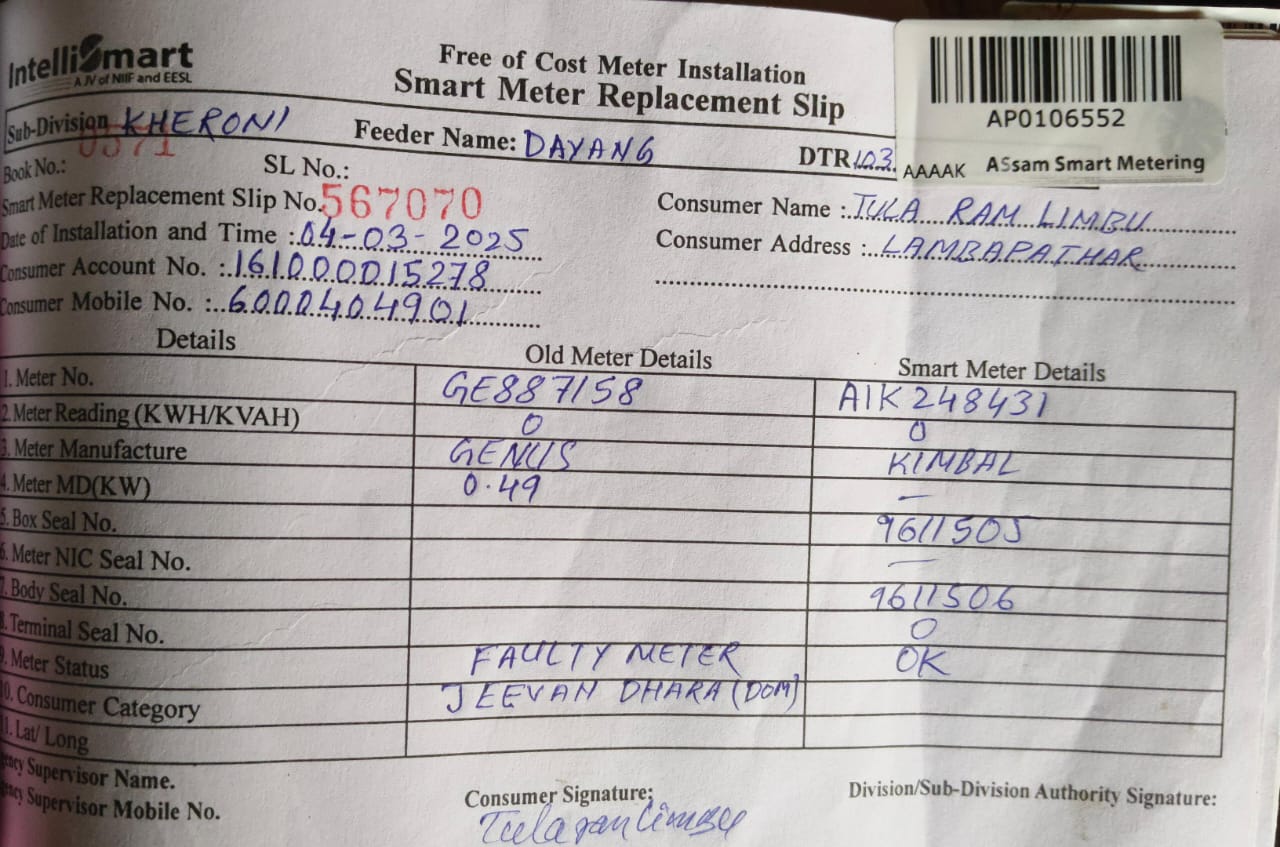 IntelliSmart
A JV of NIIF and EESL
Free of Cost Meter Installation
Smart Meter Replacement Slip
AP0106552
AAAAK ASsam Smart Metering
Sub-Division KHERONI Feeder Name: DAYANG DTR 103
Book No.: 0571 SL No.:
Smart Meter Replacement Slip No. 567070
Consumer Name : TULA RAM LIMBU
Date of Installation and Time : 04-03-2025
Consumer Address : LAMBAPATHAR
Consumer Account No. : 161000015278
Consumer Mobile No. : 6000404901
Details Old Meter Details Smart Meter Details
1. Meter No. GE887158 AIK248431
2. Meter Reading (KWH/KVAH) 0 0
3. Meter Manufacture GENUS KIMBAL
4. Meter MD(KW) 0.49 —
5. Box Seal No. 9611505
6. Meter NIC Seal No. —
7. Body Seal No. 9611506
8. Terminal Seal No. 0
9. Meter Status FAULTY METER OK
10. Consumer Category JEEVAN DHARA (DOM)
11. Lat/ Long
Supervisor Name.
Supervisor Mobile No.
Consumer Signature:
Division/Sub-Division Authority Signature:
Tularam Limbu